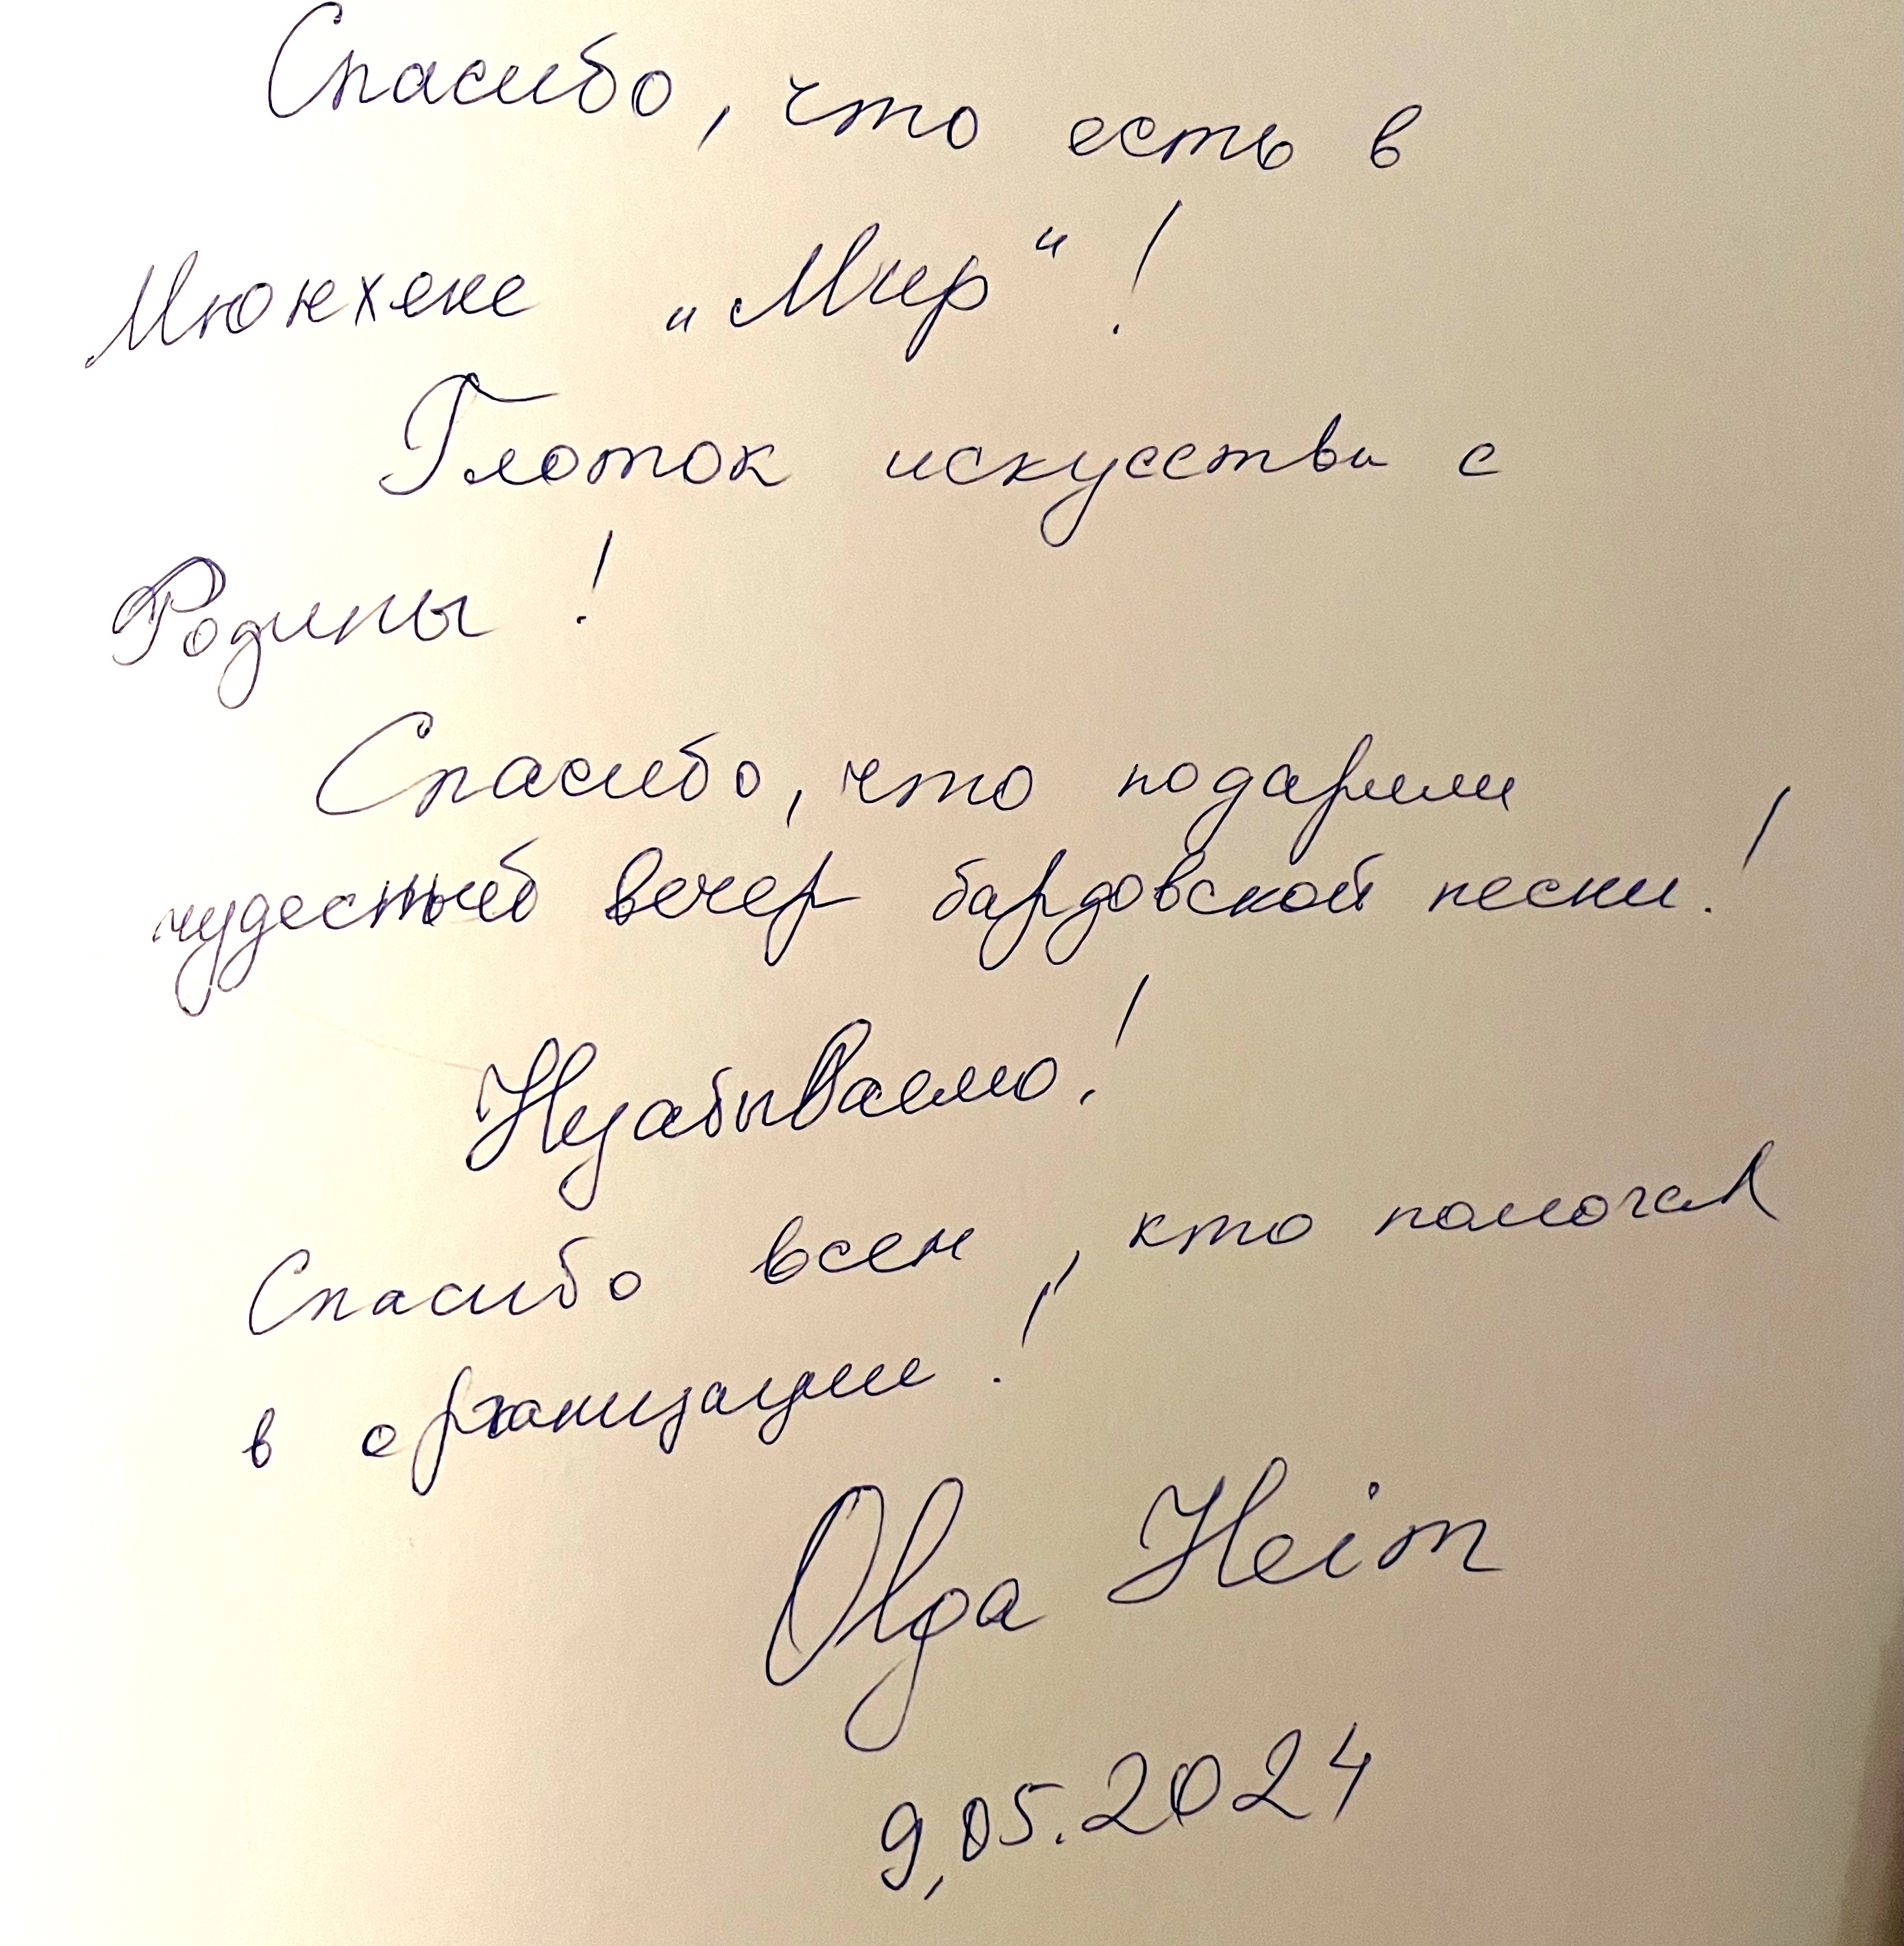 Спасибо, что есть в
Мюнхене „Мир“!
Глоток искусства с
Родины!
Спасибо, что подарили
чудестный вечер бардовской песни!
Незабываемо!
Спасибо всем, кто помогал
в организации!
Olga Heim
9.05.2024